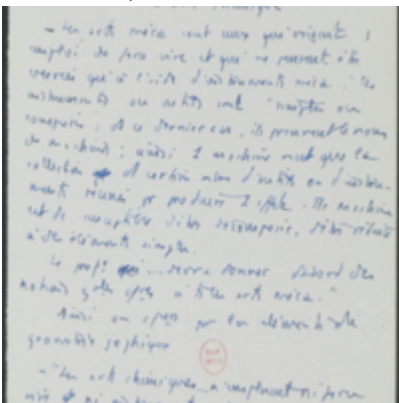 - Les arts méca sont ceux qui exigent l
emploi de force vive et qui ne peuvent être
exercés qu'à l'aide d'instruments méca. Ces
instruments ou outils sont simples ou
composés : ds ce dernier cas, ils prennent le nom
de machines ; ainsi 1 machine n'est que la
collection d'1 certain nbre d'outils ou d'instru-
ments réunis pr produire 1 effet. Une machine
est dc susceptible d'être décomposée, d'être réduite
à des éléments simples.
Le prof. ... devra donner d'abord des
notions gales à ts les arts méca."
Ainsi on pr les éléments de
géométrie
- "Les arts chimiques ... n'emploient ni force
vive et ni